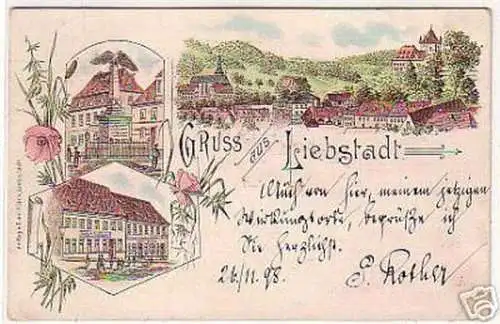 Gruss aus Liebstadt
Auch von hier, meinem jetzigen
Wirkungsorte, begrüsse ich
Sie herzlichst.
26/11. 98. P. Rother